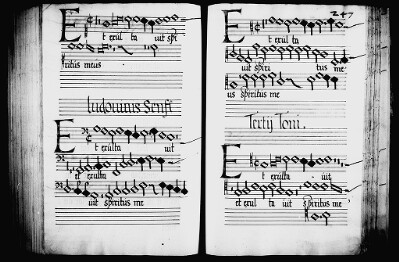 Et exul ta uit spi
ritus meus
Ludouicus Senfl
Et exulta uit
et exulta
uit spiritus me
247
Et exul ta
uit spiri tus me
us spiritus me
Tertÿ Toni.
Et exulta uit
et exul ta uit spiritus me